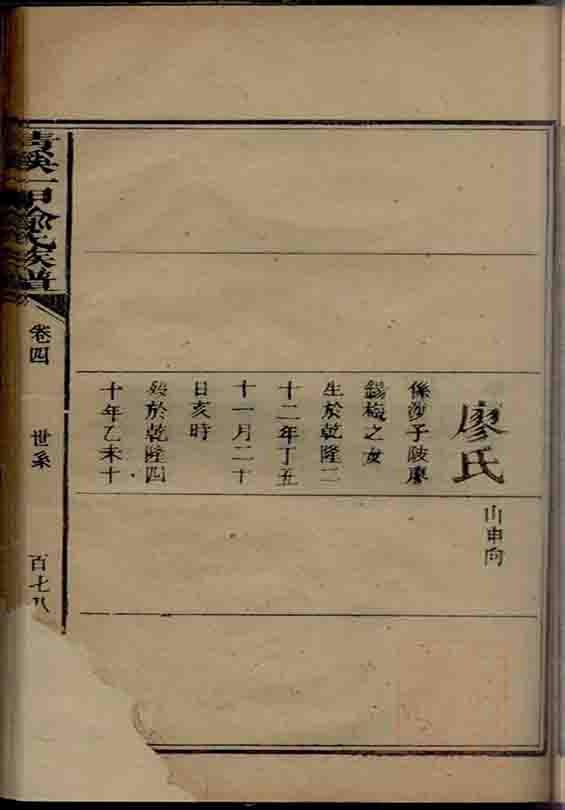 廖氏
係莎子陂廖
錫梅之女
生於乾隆二
十二年丁丑
十一月二十
日亥時
歿於乾隆四
十年乙未十
山申向
溪一甲氏族譜
卷四
世系
百七八